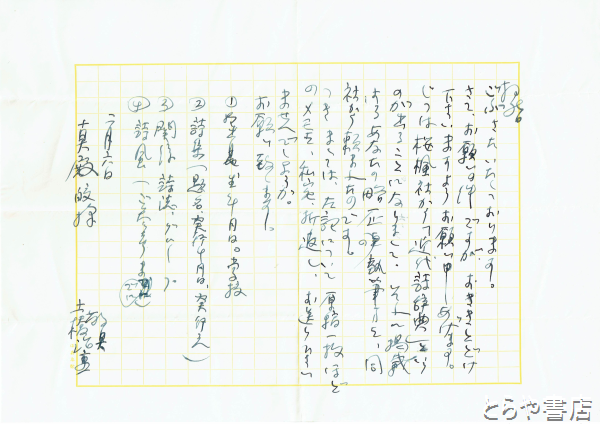 拝啓
ごぶさたいたしております。
さて、お願いの件ですが、おききとどけ
下さいますようお願い申しあげます。
じつは桜楓社からで近代詩辞典という
のが出ることになりまして、それに掲載
するあなたの略歴の執筆を、同
社から頼まれたのです。
つきましては、左記について原稿一枚ほど
のメモを、私宛、折返し、お送り下さい
ませんでしょうか。
お願い致します。
① 生年月日。学校
② 詩集(題名、発行年月日、発行元)
③ 関係詩誌・グループ
④ 詩風(
二月六日
敬具
土橋治重
真殿皎様
とらや書店